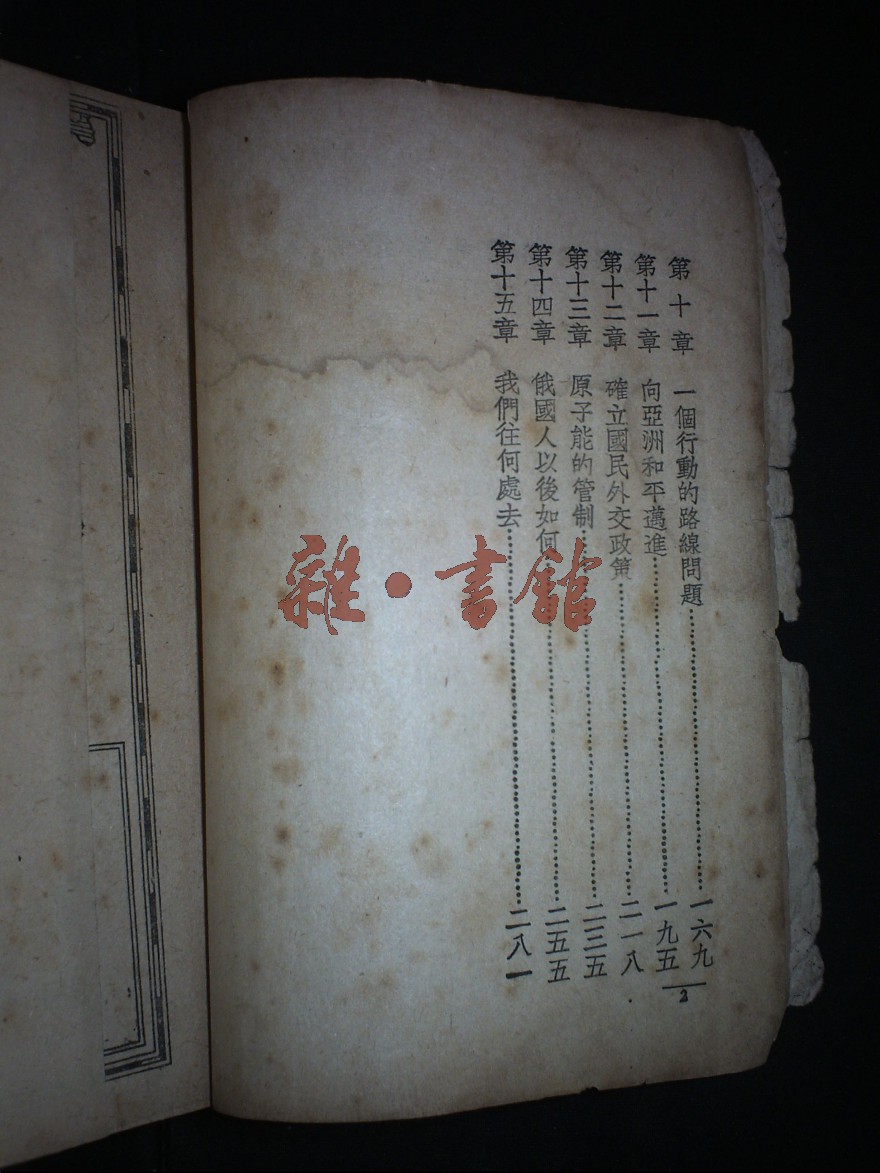 第十章 一個行動的路線問題……一六九
第十一章 向亞洲和平邁進……一九五
第十二章 確立國民外交政策……二一八
第十三章 原子能的管制……二三五
第十四章 俄國人以後如何……二五五
第十五章 我們往何處去……二八一
2
雜·書館